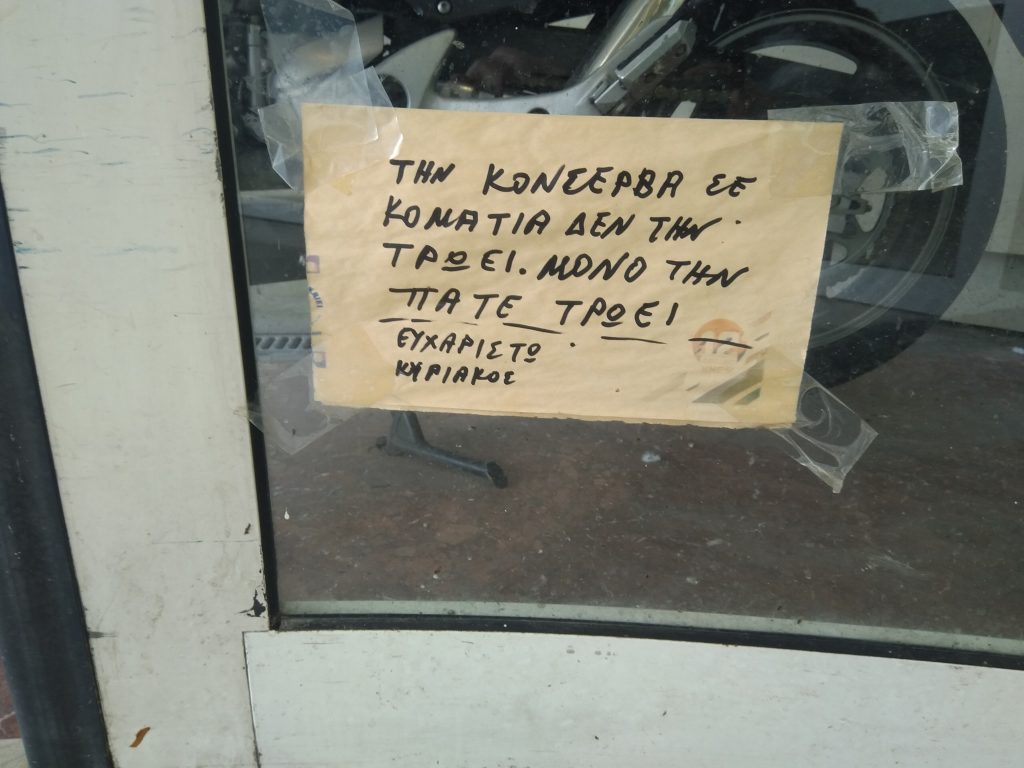 ΤΗΝ ΚΟΝΣΕΡΒΑ ΣΕ
ΚΟΜΑΤΙΑ ΔΕΝ ΤΗΝ
ΤΡΩΕΙ. ΜΟΝΟ ΤΗΝ
ΠΑΤΕ ΤΡΩΕΙ
ΕΥΧΑΡΙΣΤΩ
ΚΥΡΙΑΚΟΣ